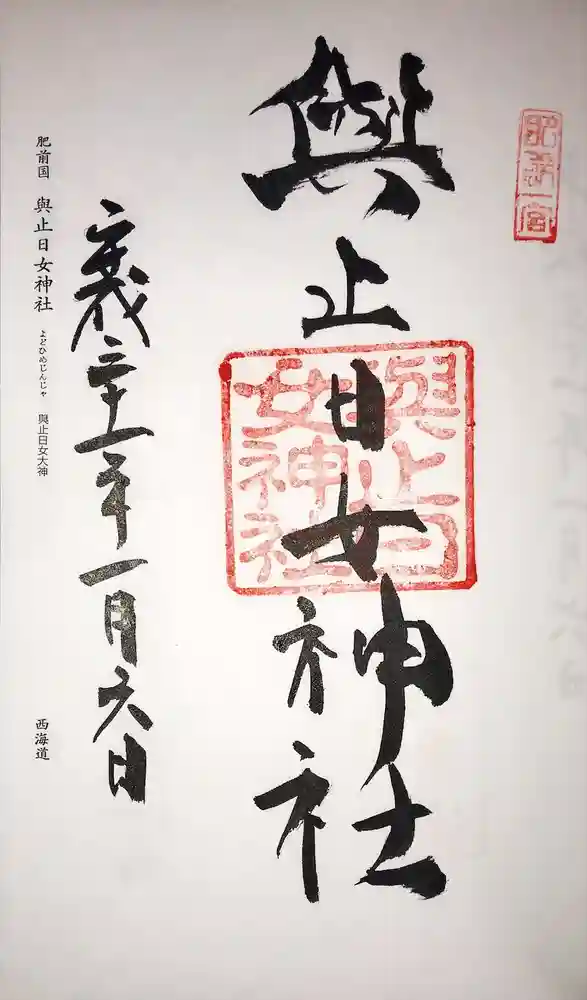 肥前一宮
與止日女神社
與止日
女神社
平成三十一年一月六日
肥前国 與止日女神社 よどひめじんじゃ 與止日女大神 西海道